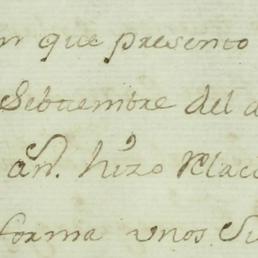 que presento
Septiembre del
an. hizo Relac
forma unos Su